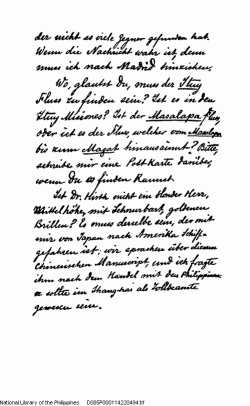 der nicht so viele Gegner gefunden hat.
Wenn die Nachricht wahr ist, dann
muss ich nach Madrid hinziehen.
Wo, glaubst Du, muss der Ituy
Fluss zu finden sein? Ist es in den
Ituy Missiones? Ist der Masalapa Fluss,
oder ist es der Fluss, welcher vom Masalapa
bis zum Magat hinausrinnt? Bitte,
schreibe mir eine Post Karte darüber,
wenn Du es finden kannst.
Ist Dr. Hirth nicht ein blonder Herr,
Mittelhöhe, mit Schnurbart, goldenen
Brillen? Es muss derselbe sein, der mit
mir von Japan nach Amerika Schiff-
gefahren ist, wir sprachen über diesem
Chinesischen Manuscript, und ich fragte
ihm nach dem Handel mit den Philippinen
er sollte in Shanghai als Zollbeamte
gewesen sein.
National Library of the Philippines